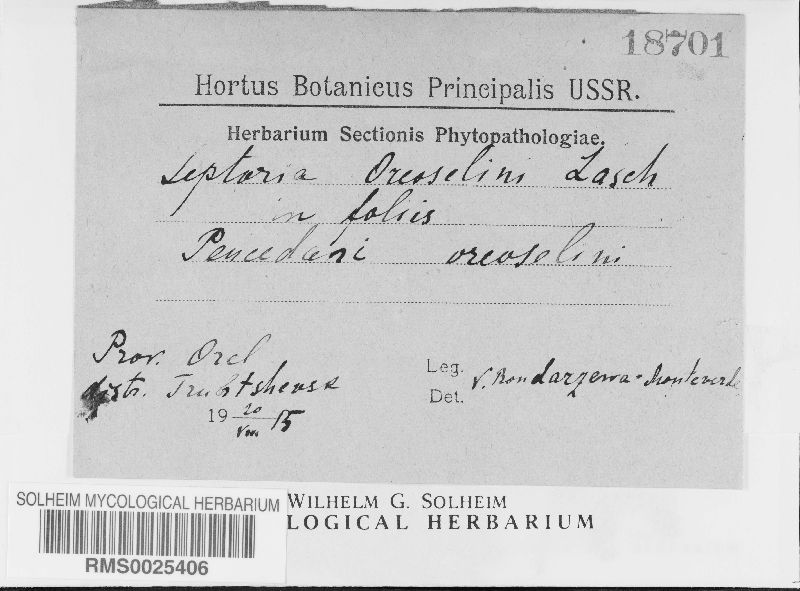 18701
Hortus Botanicus Principalis USSR.
Herbarium Sectionis Phytopathologiae.
Septoria Oreoselini Lasch
in foliis
Peucedani oreoselini
Prov. Orel
distr. Trubtshevsk
Leg. Det. V. Bondarzewa-Monteverde
19 20/VIII 15
SOLHEIM MYCOLOGICAL HERBARIUM
RMS0025406
WILHELM G. SOLHEIM
LOGICAL HERBARIUM